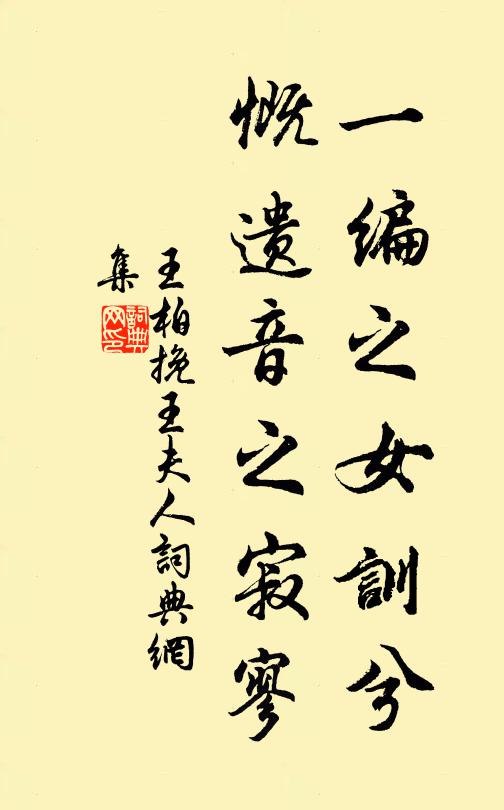 一编之女訓兮
慨遗音之寂寥
王柏挽王夫人詞典網
集
詞典
网印